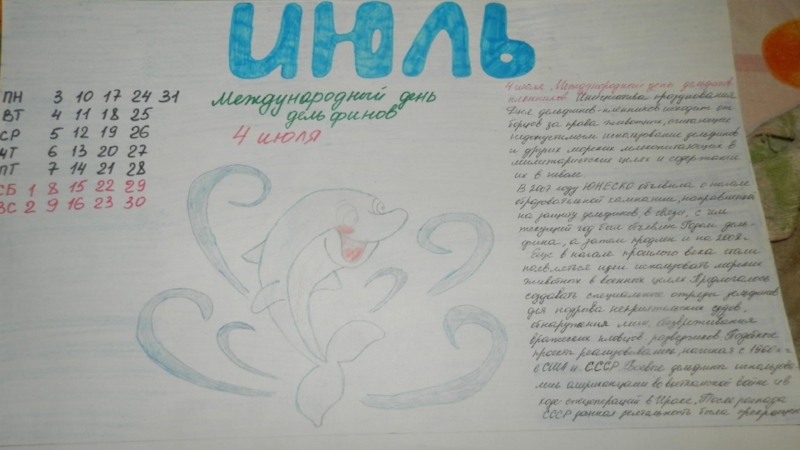 ИЮЛЬ
ПН 3 10 17 24 31
ВТ 4 11 18 25
СР 5 12 19 26
ЧТ 6 13 20 27
ПТ 7 14 21 28
СБ 1 8 15 22 29
ВС 2 9 16 23 30
Международный день
дельфинов
4 июля
4 июля Международный день дельфинов-
пленников. Инициатива празднования
Дня дельфинов-пленников исходит от
борцов за права животных, считающих
недопустимым использование дельфинов
и других морских млекопитающих в
милитаристских целях и содержание
их в неволе.
В 2007 году ЮНЕСКО объявила о начале
образовательной кампании, направленной
на защиту дельфинов, в связи, с чем
текущий год был объявлен Годом дель-
фина, а затем продлен и на 2008 г.
Еще в начале прошлого века стали
появляться идеи использовать морских
животных в военных целях. Предлагалось
создавать специальные отряды дельфинов
для подрыва неприятельских судов,
обнаружения мин, обезвреживания
вражеских пловцов-разведчиков. Подобные
проекты реализовывались, начиная с 1960-х г
в США и СССР. Боевые дельфины использова-
лись американцами во вьетнамской войне и в
ходе спецопераций в Ираке. После распада
СССР данная деятельность была прекращена